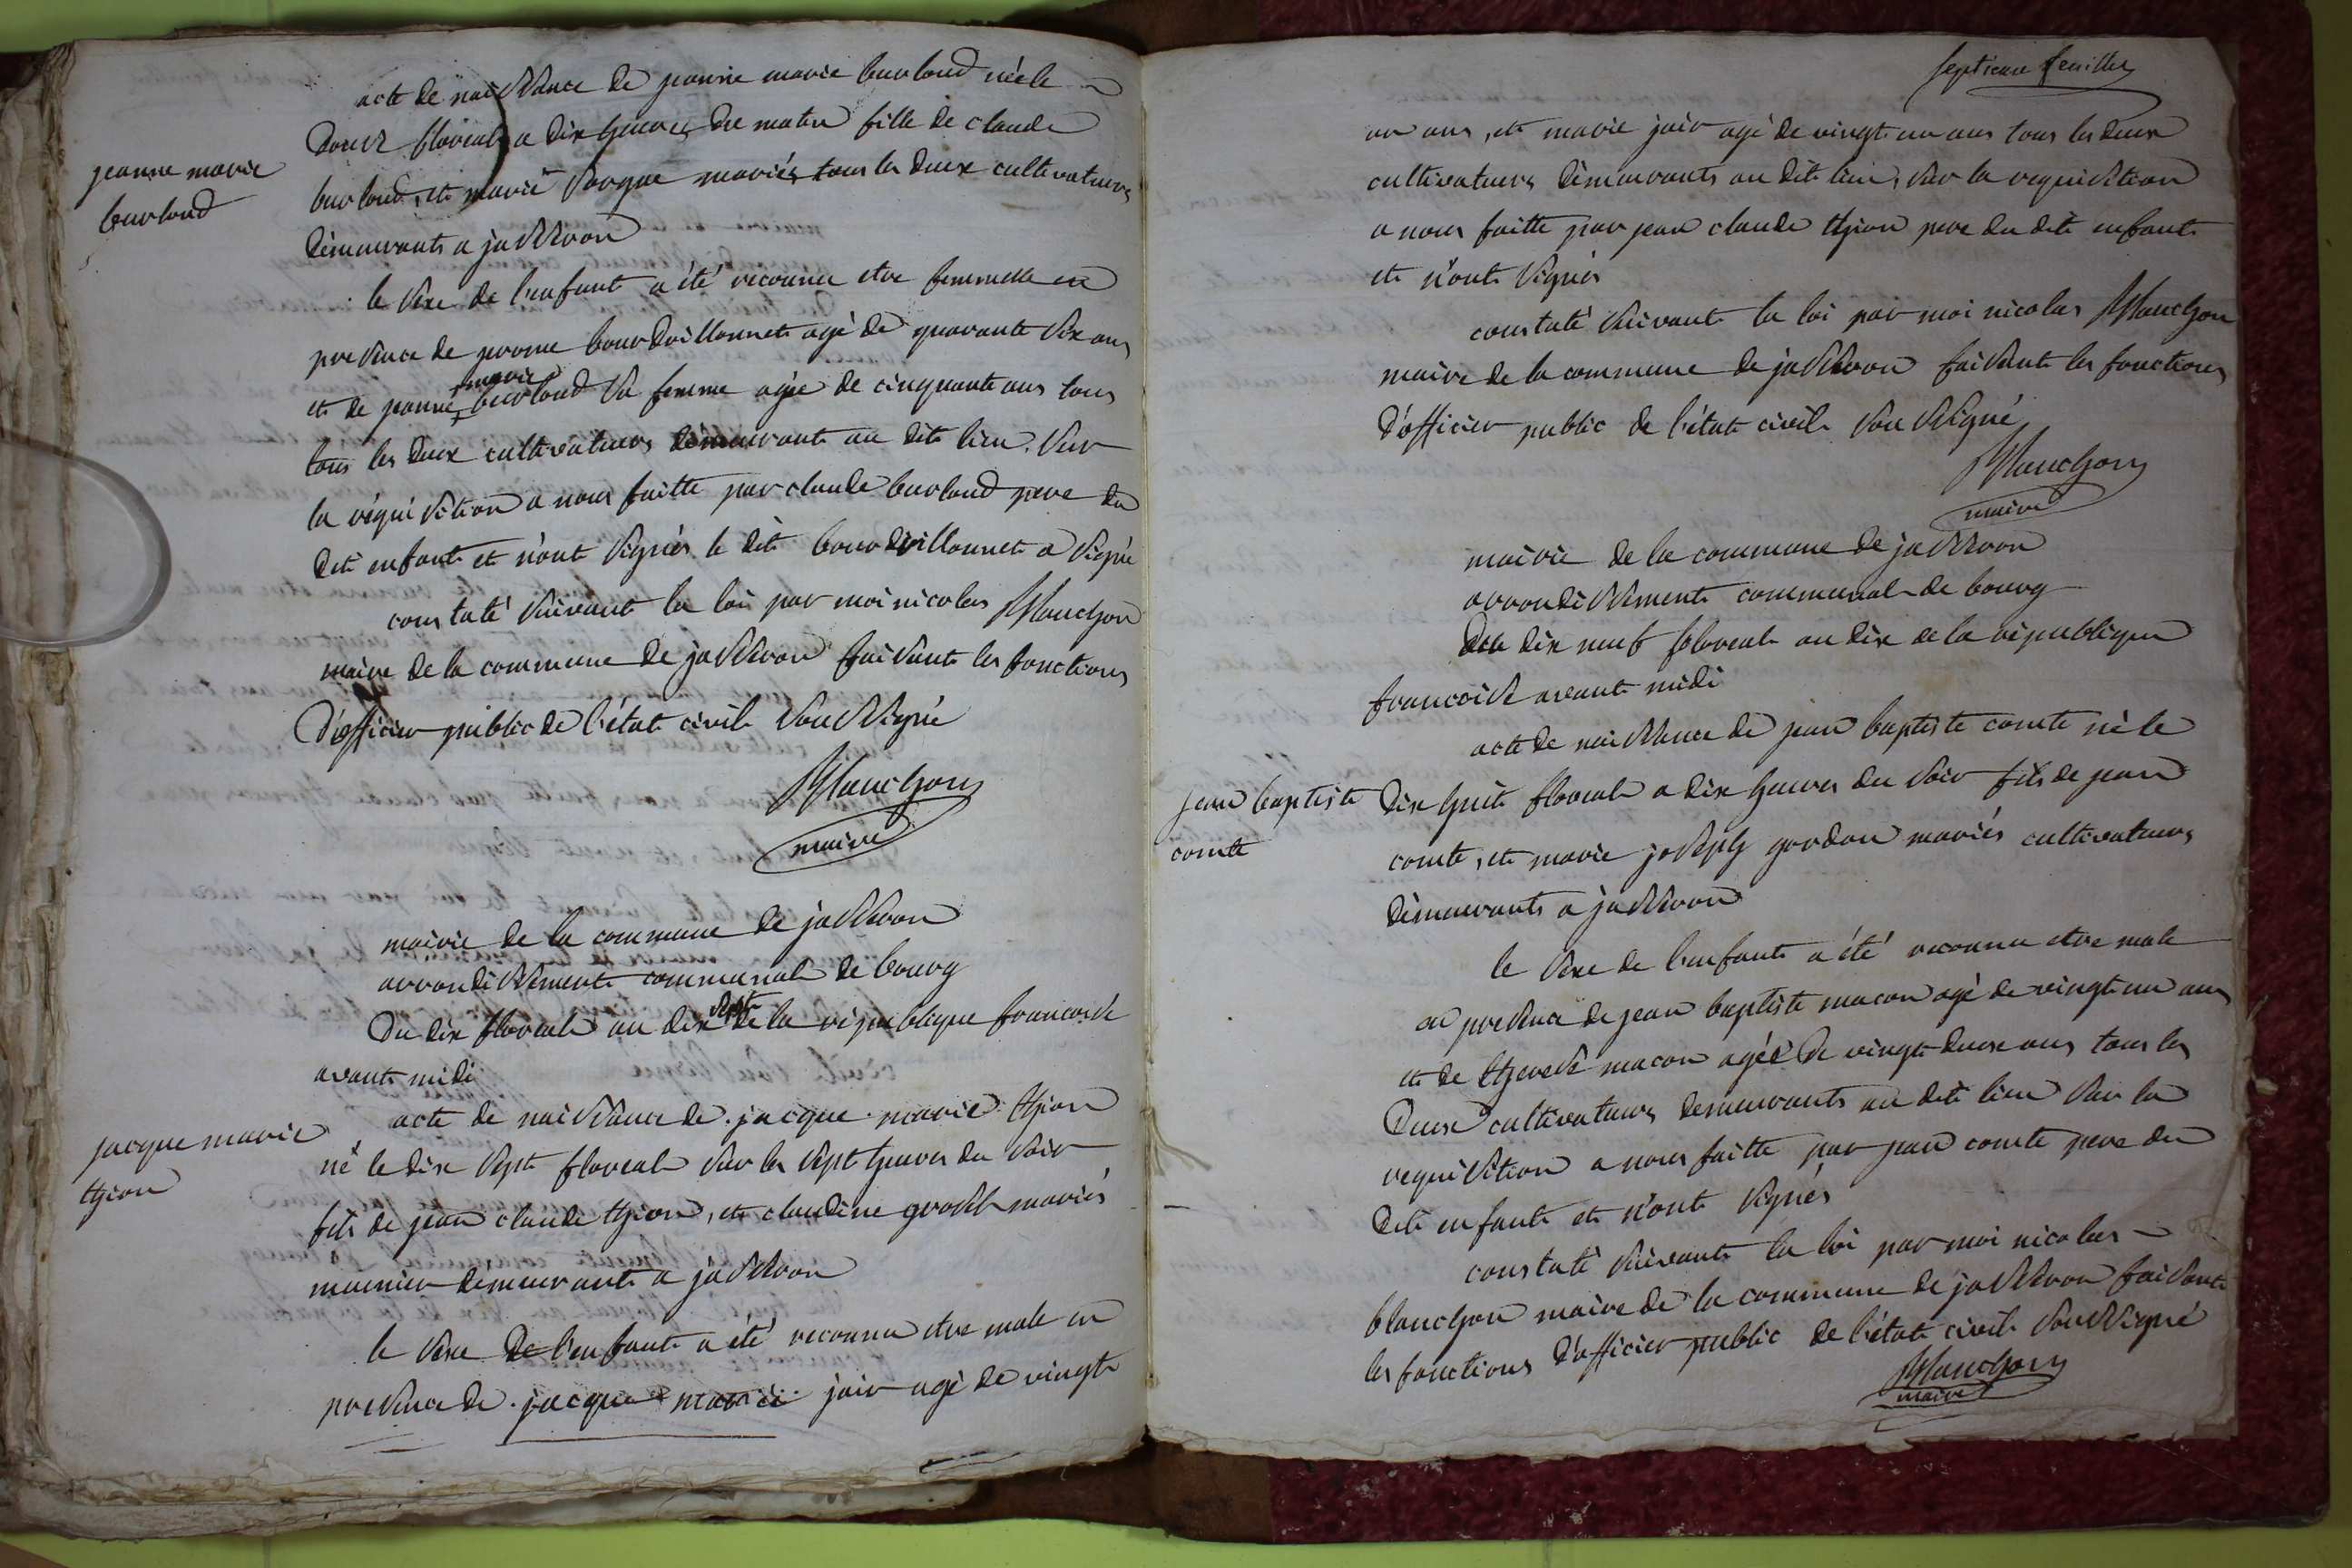 acte de naissance de jeanne marie burloud née le
douze floreal a dix heures du matin fille de claude
jeanne marie
burloud
burloud, et marie vorgue mariés tous les deux cultivateurs
demeurants a jasseron
le sexe de l'enfant a été reconnu etre femmelle en
presence de jerome bourdoillonnet agé de quarante six ans
et de jeanne marie burloud sa femme agée de cinquante ans tous
tous les deux cultivateurs demeurants au dit lieu. sur
la réquisition a nous faitte par claude burloud pere du
dit enfant et n'ont signés le dit bourdoillonnet a signé
constaté suivant la loi par moi nicolas Blanchon
maire de la commune de jasseron faisant les fonctions
d'officier public de l'état civil soussigné
Blanchon
maire
mairie de la commune de jasseron
arrondissement communal de bourg
Du dix sept floreal an dix de la république francoise
avant midi
jacque marie
thion
acte de naissance de jacque marie thion
né le dix sept floreal sur les sept heures du soir
fils de jean claude thion, et claudine grossel mariés
meunier demeurant a jasseron
le sexe de l'enfant a été reconnu etre male en
presence de jacque marie join agé de vingt
septieme feuillet
un ans, et marie join agé de vingt un ans tous les deux
cultivateurs demeurants au dit lieu, sur la requisition
a nous faitte par jean claude thion pere du dit enfant
et n'ont signés
constaté suivant la loi par moi nicolas Blanchon
maire de la commune de jasseron faisant les fonctions
d'officier public de l'état civil soussigné
Blanchon
maire
mairie de la commune de jasseron
arrondissement communal de bourg
Du dix neuf floreal an dix de la république
francoise avant midi
acte de naissance de jean baptiste comte né le
jean baptiste
comte
dix huit floreal a dix heures du soir fils de jean
comte, et marie joseph gordon mariés cultivateurs
demeurants a jasseron
le sexe de l'enfant a été reconnu etre male
en presence de jean baptiste macon agé de vingt un ans
et de therese macon agée de vingt deux ans tous les
deux cultivateurs demeurants au dit lieu sur la
requisition a nous faitte par jean comte pere du
dit enfant et n'ont signés
constaté suivant la loi par moi nicolas
blanchon maire de la commune de jasseron faisant
les fonctions d'officier public de l'état civil soussigné
Blanchon
maire